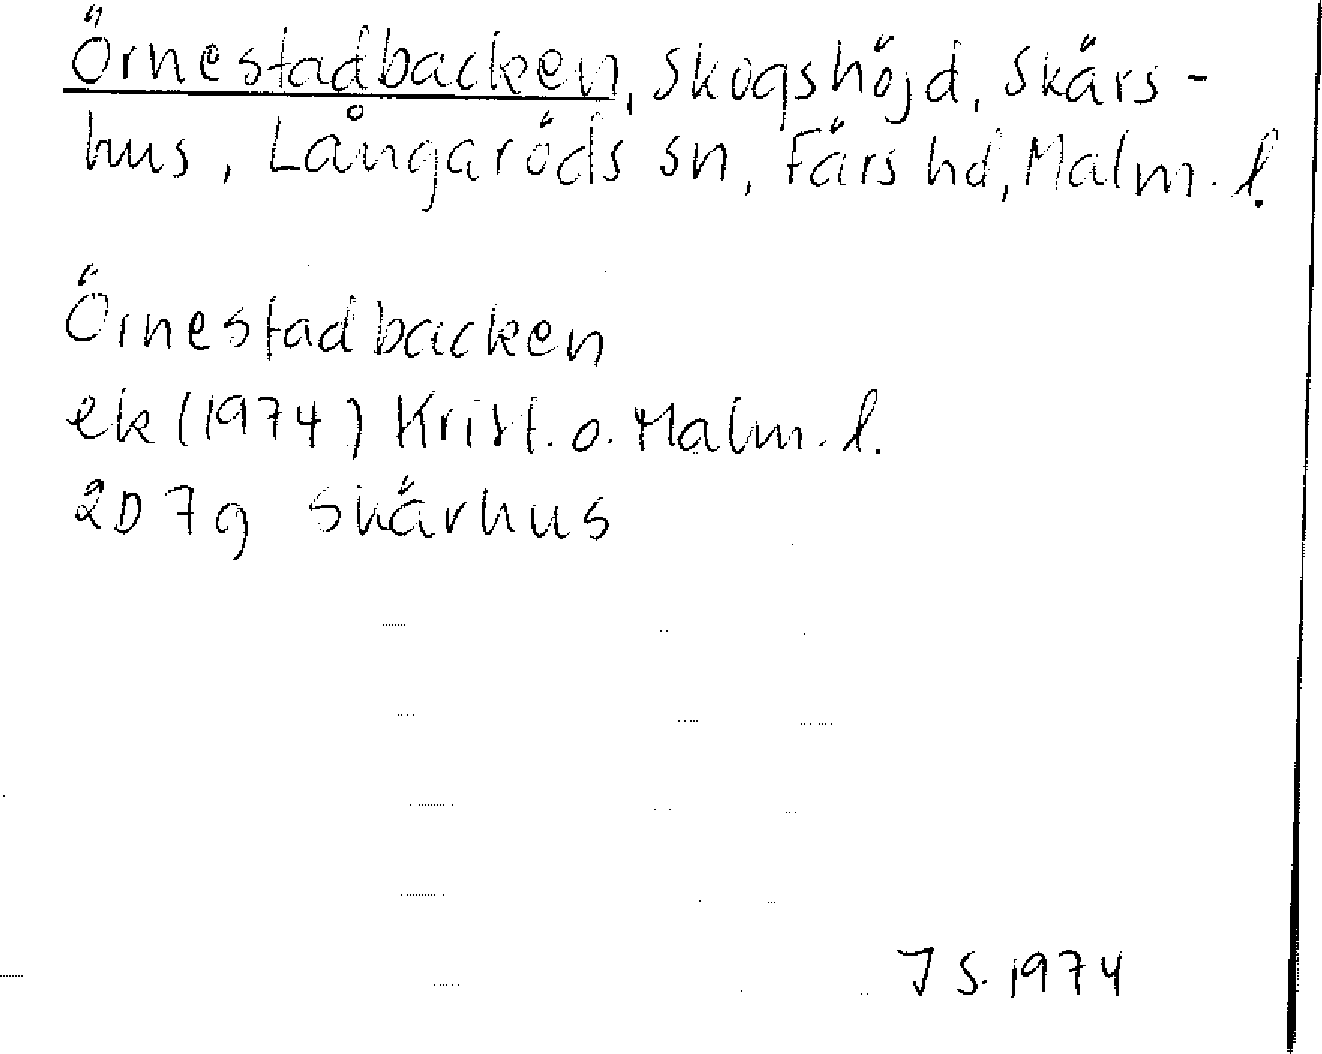 Örnestadbacken, Skogshöjd, Skärs-
hus, Långaröds sn, Färs hd, Malm. l.
Örnestadbacken
ek (1974) Krist. o. Malm. l.
2D 7g Skärhus
JS. 1974